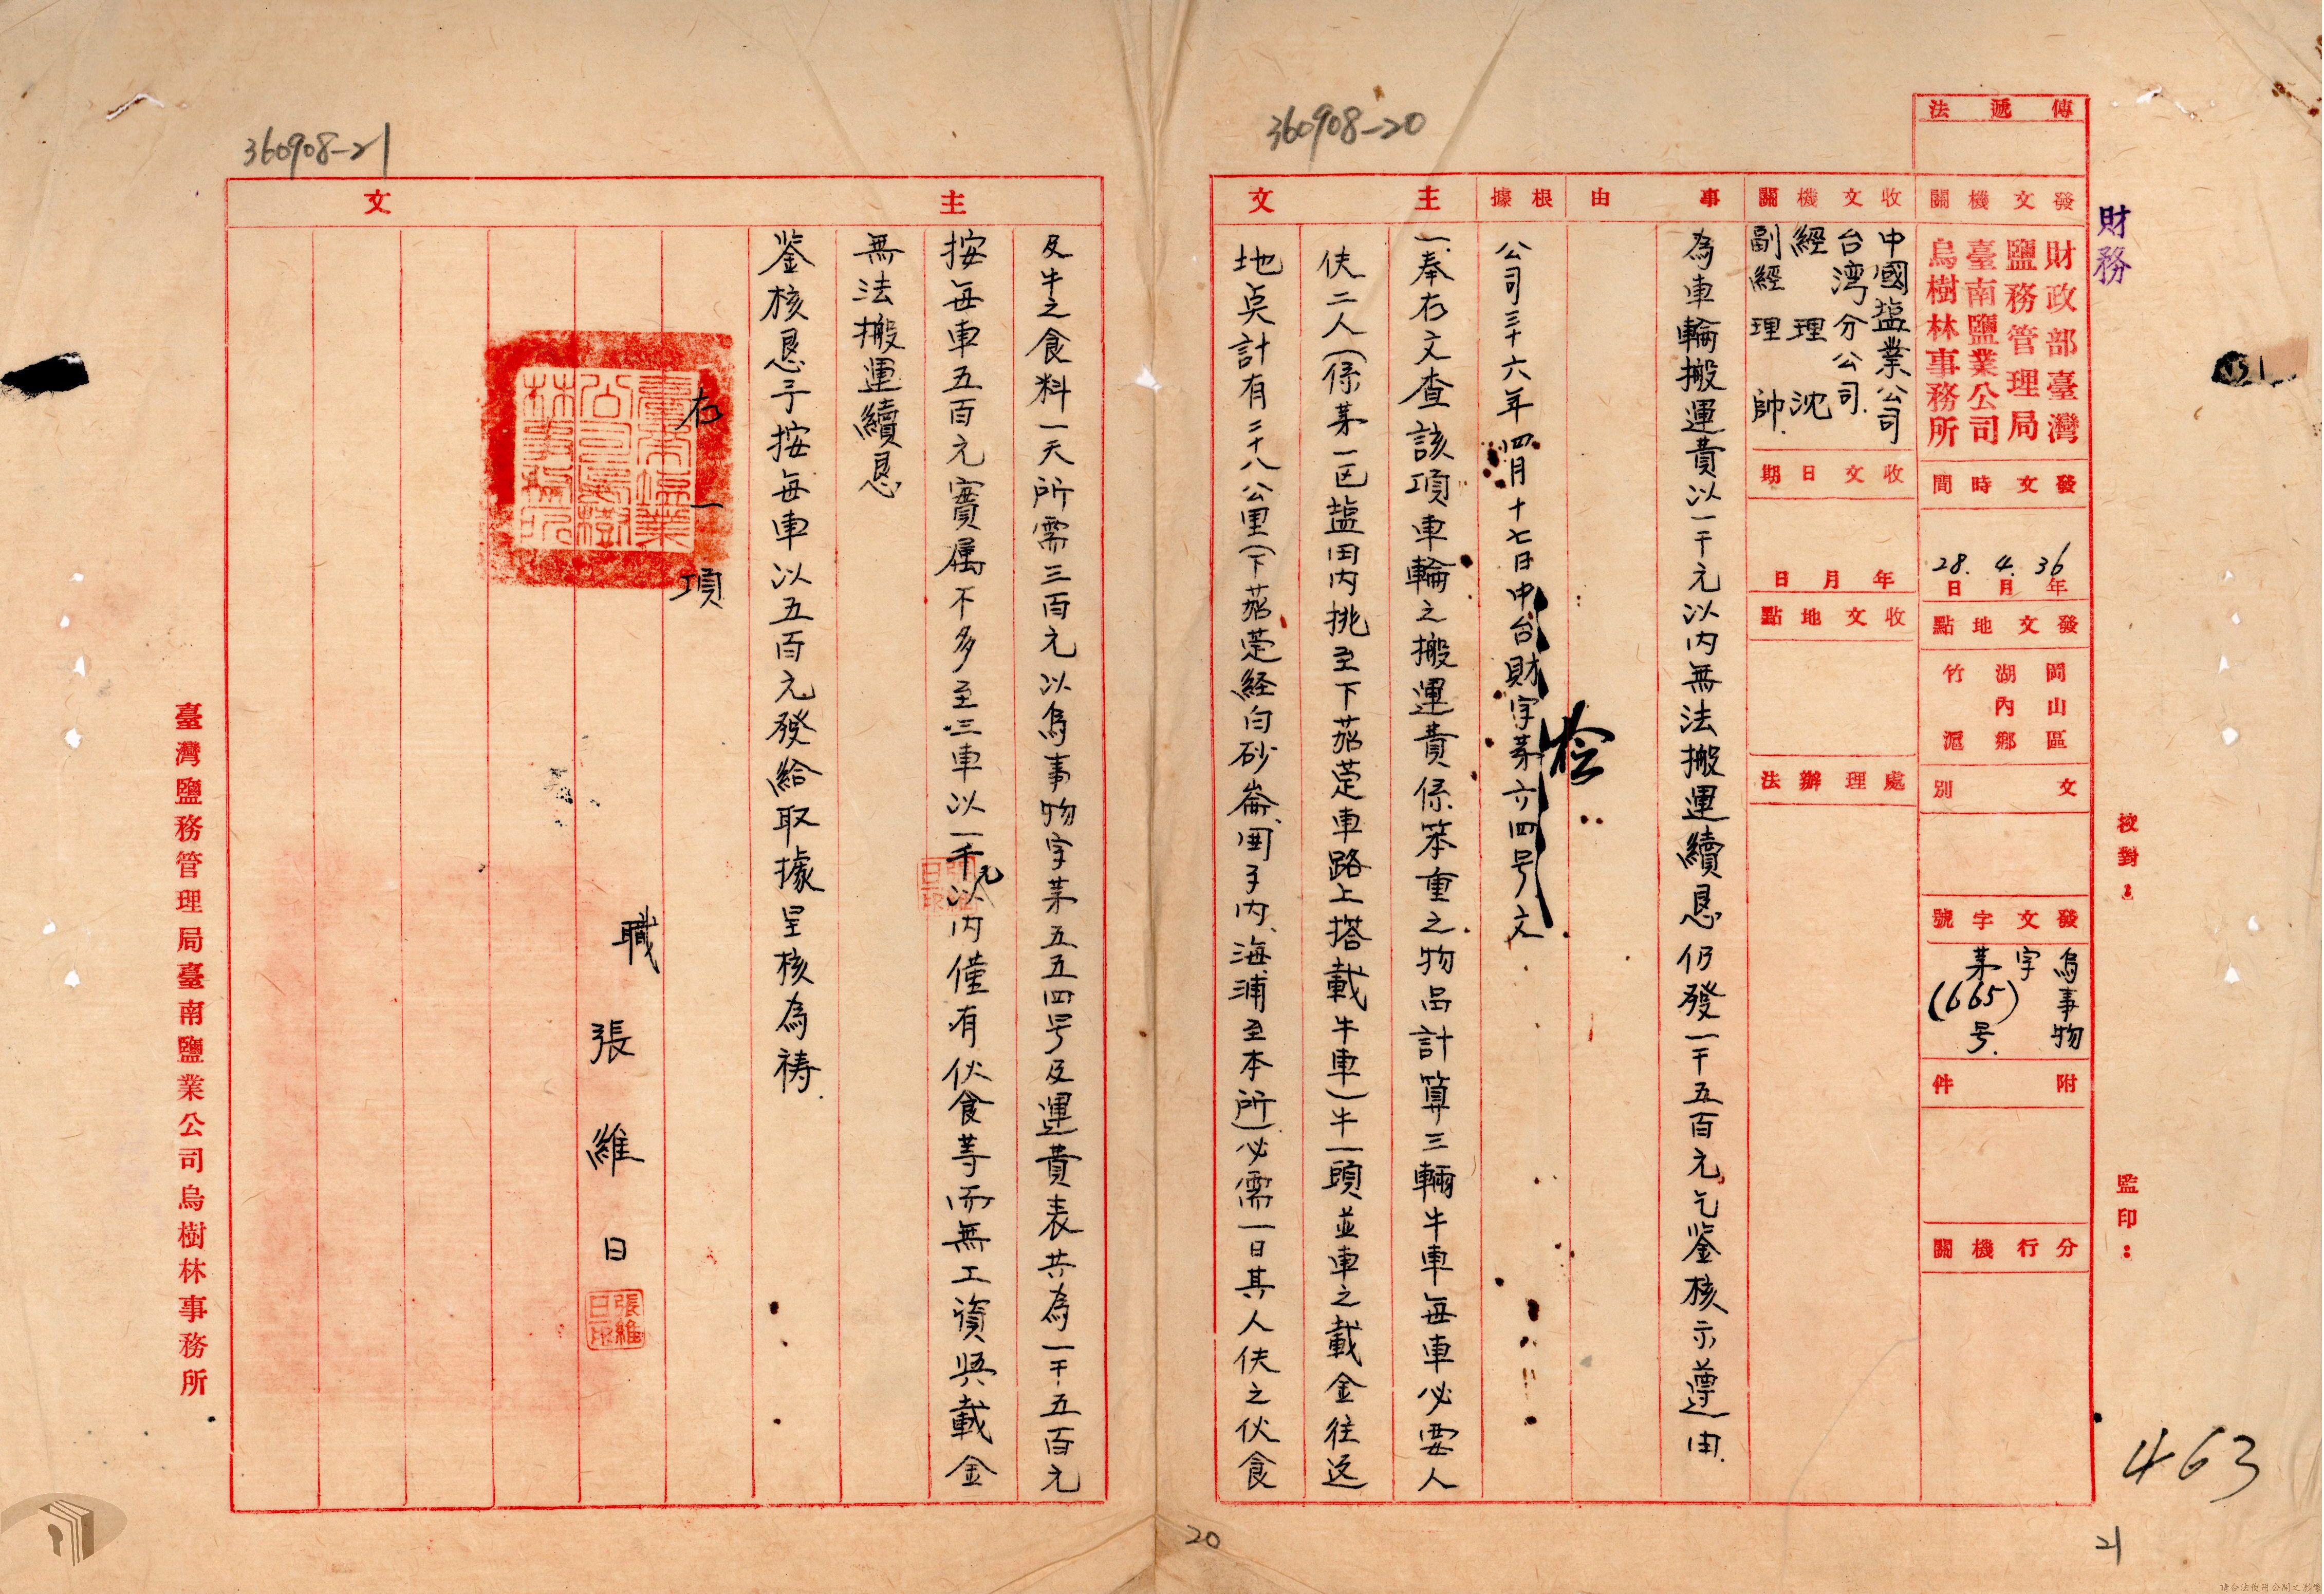 360908-20
傳遞法
財務
發文機關
財政部臺灣
鹽務管理局
臺南鹽業公司
烏樹林事務所
發文時間
36年4月28日
發文地點
岡山區
湖內鄉
竹滬
文別
發文字號
烏事物
字
第(665)号.
附件
分行機關
校對：
監印：
收文機關
中國塩業公司
台湾分公司.
經理 沈
副經理 帥.
收文日期
年月日
收文地點
處理辦法
事由
為車輪搬運費以一千元以内無法搬運續恳仍發一千五百元乞鉴核示遵由.
根據
公司三十六年四月十七日中台財字第六四号文
主文
一.奉右文查該項車輪之搬運費係笨重之物品計算三輛牛車每車必要人
伕二人(係第一区塩田内挑至下茄萣車路上搭載牛車)牛一頭並車之載金往返
地点計有二十八公里(下茄萣経白砂崙、圍子内、海浦至本所)必需一日其人伕之伙食
463
20
21
360908-21
主文
及牛之食料一天所需三百元以烏事物字第五五四号及運費表共為一千五百元
按每車五百元實属不多至三車以一千元以内僅有伙食等而無工資與載金
無法搬運續恳
鉴核恳予按每車以五百元發給取據呈核為禱.
右一項
職 張維日
張維日印
臺灣鹽務管理局臺南鹽業公司烏樹林事務所
請合法使用公開之影像